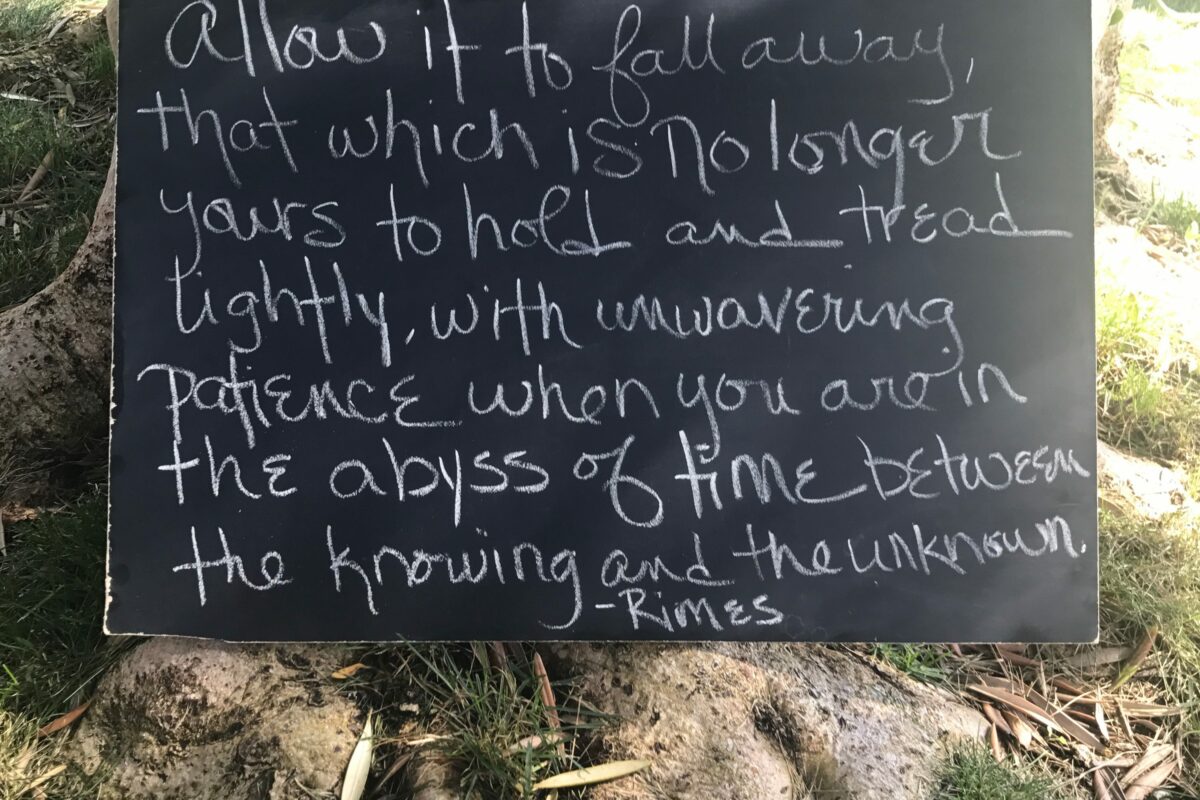 Allow it to fall away,
that which is no longer
yours to hold and tread
lightly, with unwavering
patience when you are in
the abyss of time between
the knowing and the unknown.
-Rimes